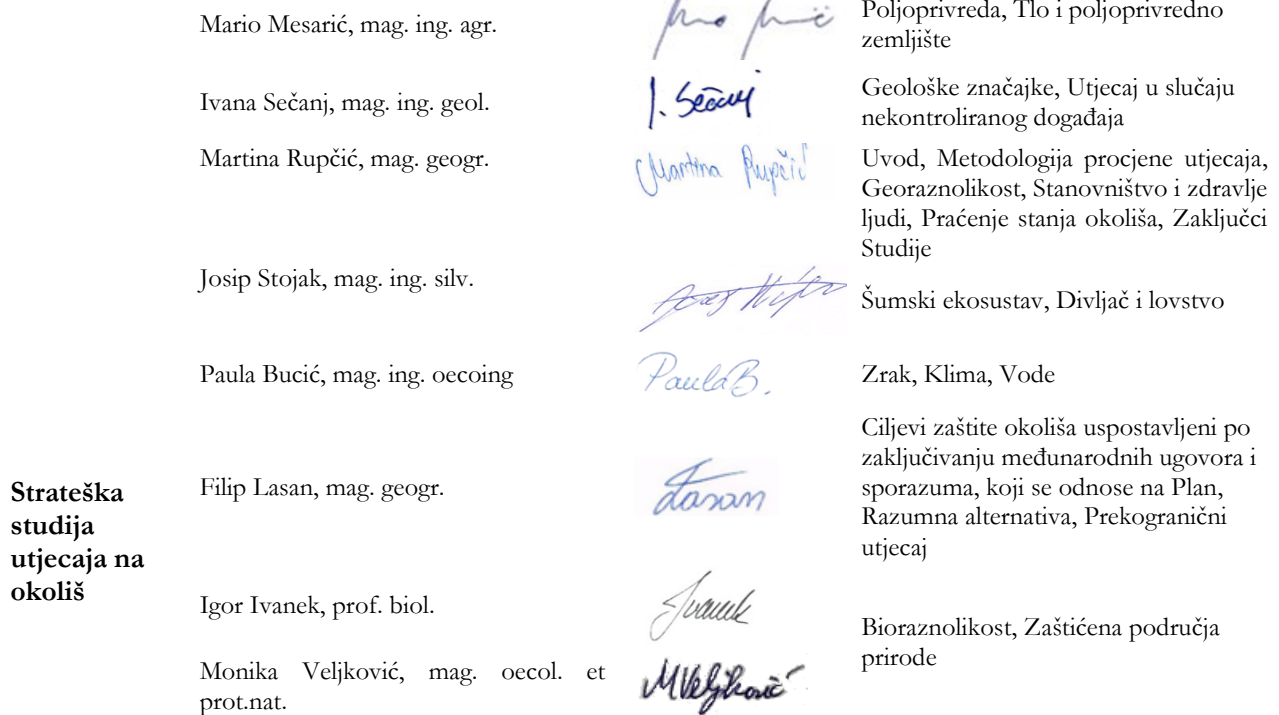 Mario Mesarić, mag. ing. agr.
Poljoprivreda, Tlo i poljoprivredno
zemljište
Ivana Sečanj, mag. ing. geol.
I. Sečanj
Geološke značajke, Utjecaj u slučaju
nekontroliranog događaja
Martina Rupčić, mag. geogr.
Martina Rupčić
Uvod, Metodologija procjene utjecaja,
Georaznolikost, Stanovništvo i zdravlje
ljudi, Praćenje stanja okoliša, Zaključci
Studije
Josip Stojak, mag. ing. silv.
Šumski ekosustav, Divljač i lovstvo
Paula Bucić, mag. ing. oecoing
PaulaB.
Zrak, Klima, Vode
Strateška
studija
utjecaja na
okoliš
Filip Lasan, mag. geogr.
Lasan
Ciljevi zaštite okoliša uspostavljeni po
zaključivanju međunarodnih ugovora i
sporazuma, koji se odnose na Plan,
Razumna alternativa, Prekogranični
utjecaj
Igor Ivanek, prof. biol.
Ivanek
Bioraznolikost, Zaštićena područja
prirode
Monika Veljković, mag. oecol. et
prot.nat.
MVeljković